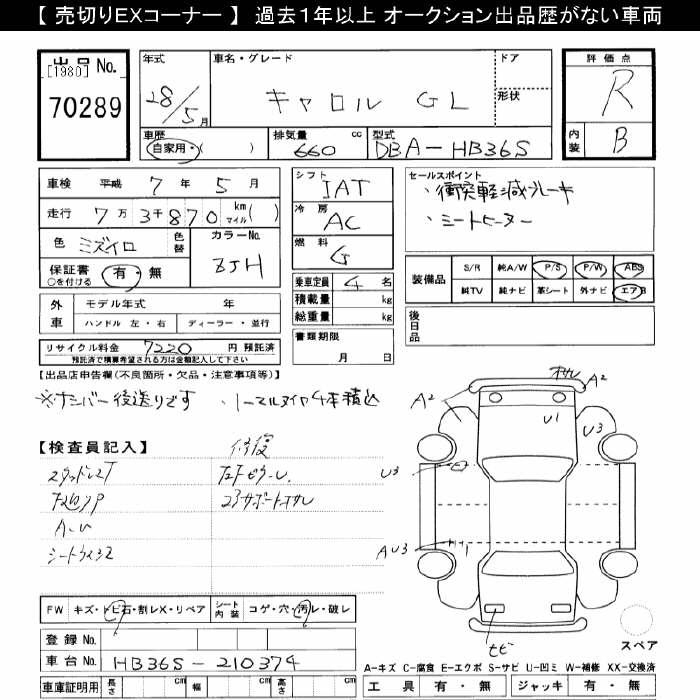 【 売切りEXコーナー 】 過去1年以上 オークション出品歴がない車両
出品 No.
[1980]
70289
年式
28/5月
車名・グレード
キャロル GL
ドア
形状
評価点
R
内装
B
車歴
自家用・( )
排気量
660 cc
型式
DBA-HB36S
車検 平成 7 年 5 月
走行 7 万 3 千 870 km マイル ( )
色 ミズイロ 色替
カラーNo.
ZJH
保証書
○を付ける
有・無
外車
モデル年式 年
ハンドル 左・右
ディーラー・並行
リサイクル料金 7220 円 預託済
預託済で積算希望される方は金額記入して下さい
シフト
IAT
冷房
AC
燃料
G
乗車定員 4 名
積載量 kg
総重量 kg
書類期限
月 日
セールスポイント
・衝突軽減ブレーキ
・シートヒーター
装備品
S/R 純A/W P/S P/W ABS
純TV 純ナビ 革シート 外ナビ エアB
後日品
【出品店申告欄(不良箇所・欠品・注意事項等)】
※ナンバー後送りです ・ノーマルタイヤ4本積込
【検査員記入】
修復
スタッドレスT
A-U
FW キズ・トビ石・割レX・リペア
シート内装 コゲ・穴・汚レ・破レ
登録 No.
車台 No. HB36S-210374
車庫証明用 長さ cm 幅 cm 高さ cm
A2
A2
U1
U3
U3
AU3
トビ
スペア
A-キズ C-腐食 E-エクボ S-サビ U-凹ミ W-補修 XX-交換済
工具 有・無 ジャッキ 有・無